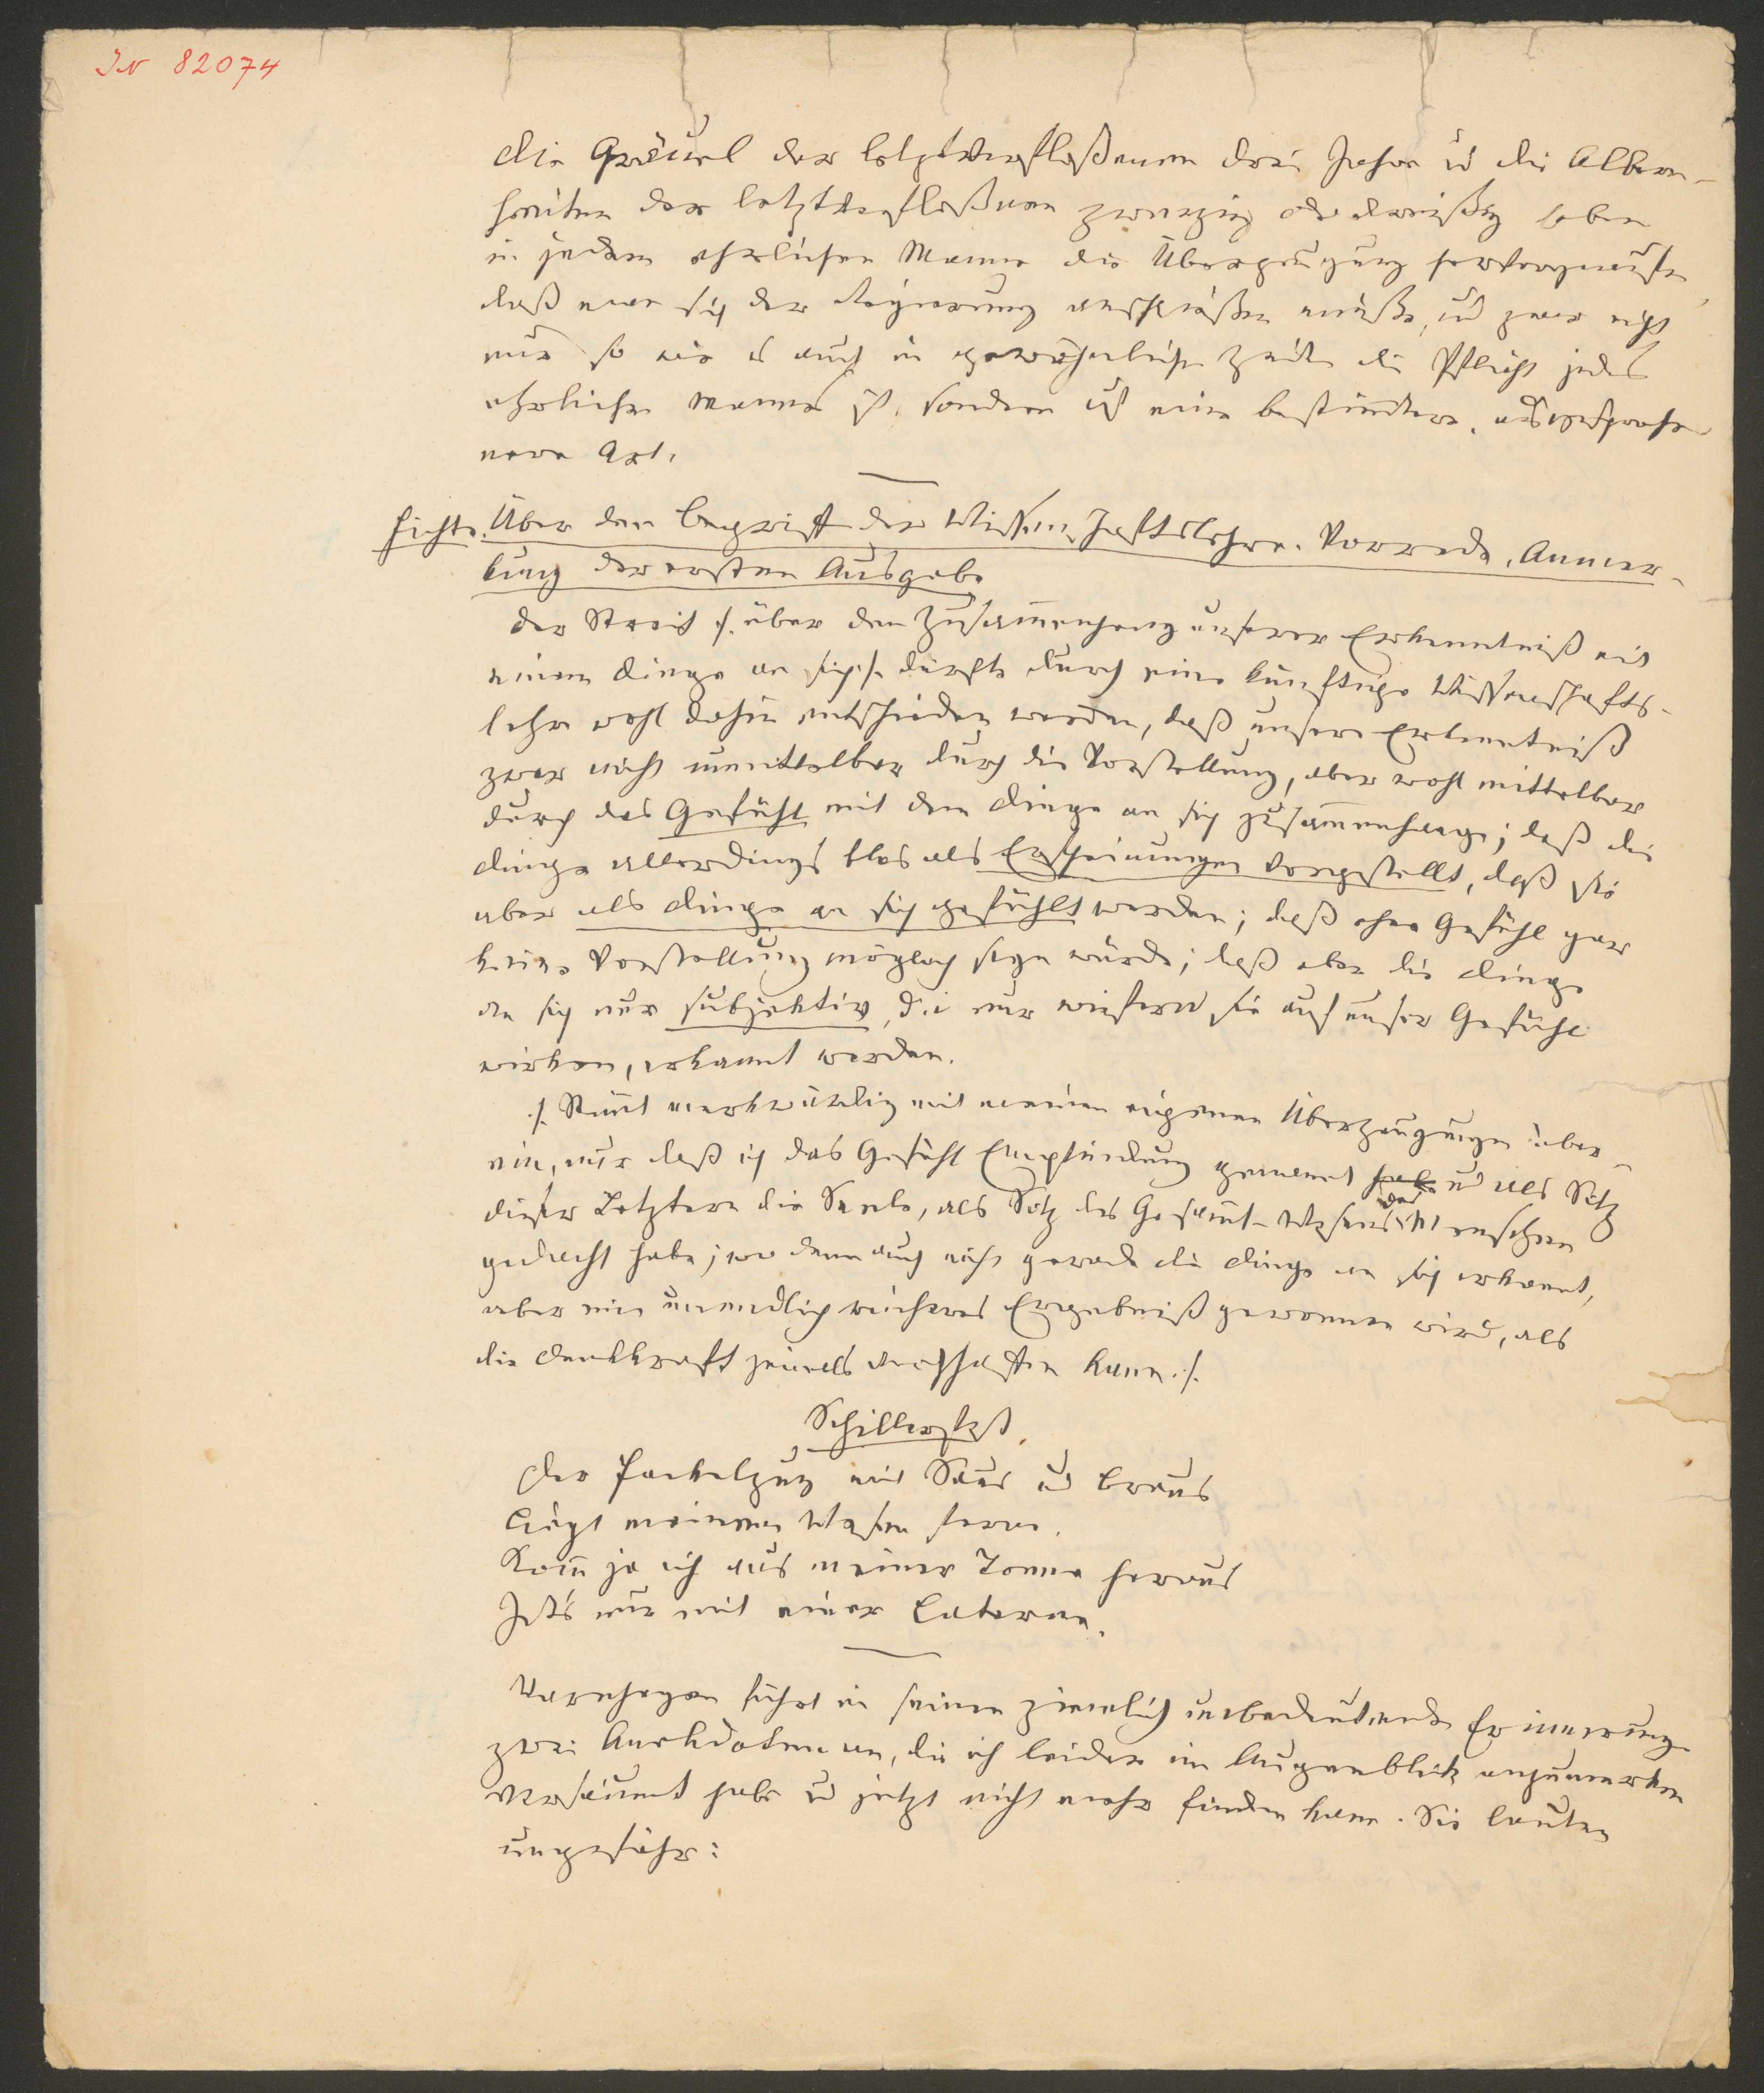 IN 82074
Die Gräuel der letztverfloßenen drei Jahre u die Albern-
heiten der letztverfloßenen zwanzig oder dreißig haben
in jedem ehrlichen Manne die Überzeugung hervorgerufen,
daß man sich der Regierung anschließen müße, u zwar nicht
nur so wie es auch in gewöhnlichen Zeiten die Pflicht jedes
ehrlichen Mannes ist, sondern auf eine bestimtere, ausgesproche-
nere Art.
Fichte. Über den Begriff der Wissenschaftslehre. Vorrede, Anmer-
kung der ersten Ausgabe
Der Streit /: über den Zusam̅enhang unserer Erkenntniß mit
einem Dinge an sich :/ dürfte durch eine künftige Wissenschafts-
lehre wohl dahin entschieden werden, daß unsere Erkenntniß
zwar nicht unmittelbar durch die Vorstellung, aber wohl mittelbar
durch das Gefühl mit dem Dinge an sich zusam̅enhange; daß die
Dinge allerdings blos als Erscheinungen vorgestellt, daß sie
aber als Dinge an sich gefühlt werden; daß ohne Gefühl gar
keine Vorstellung möglich seyn würde; daß aber die Dinge
an sich nur subjektiv, d.i. nur wiefern sie auf unser Gefühl
wirken, erkannt werden.
/: Stim̅t merkwürdig mit meinen eigenen Überzeugungen über-
ein, nur daß ich das Gefühl Empfindung genannt habe u als Sitz
dieser Letztern die Seele, als Sitz des Gesam̅t-Wesens des Menschen
gedacht habe; wo denn auch nicht gerade die Dinge an sich erkannt,
aber ein unendlich reicheres Ergebniß gewonnen wird, als
die Denkkraft jemals verschaffen kann. :/
Schillerfest.
Der Fackelzug mit Saus u Braus
Liegt meinem Wesen fern.
Kom̅ ja ich aus meiner Tonne heraus
Ists nur mit einer Laterne.
Varnhagen führt in seinen ziemlich unbedeutenden Erinnerungen
zwei Anekdoten an, die ich leider im Augenblick anzumerken
versäumt habe u jetzt nicht mehr finden kann. Sie lauten
ungefähr: